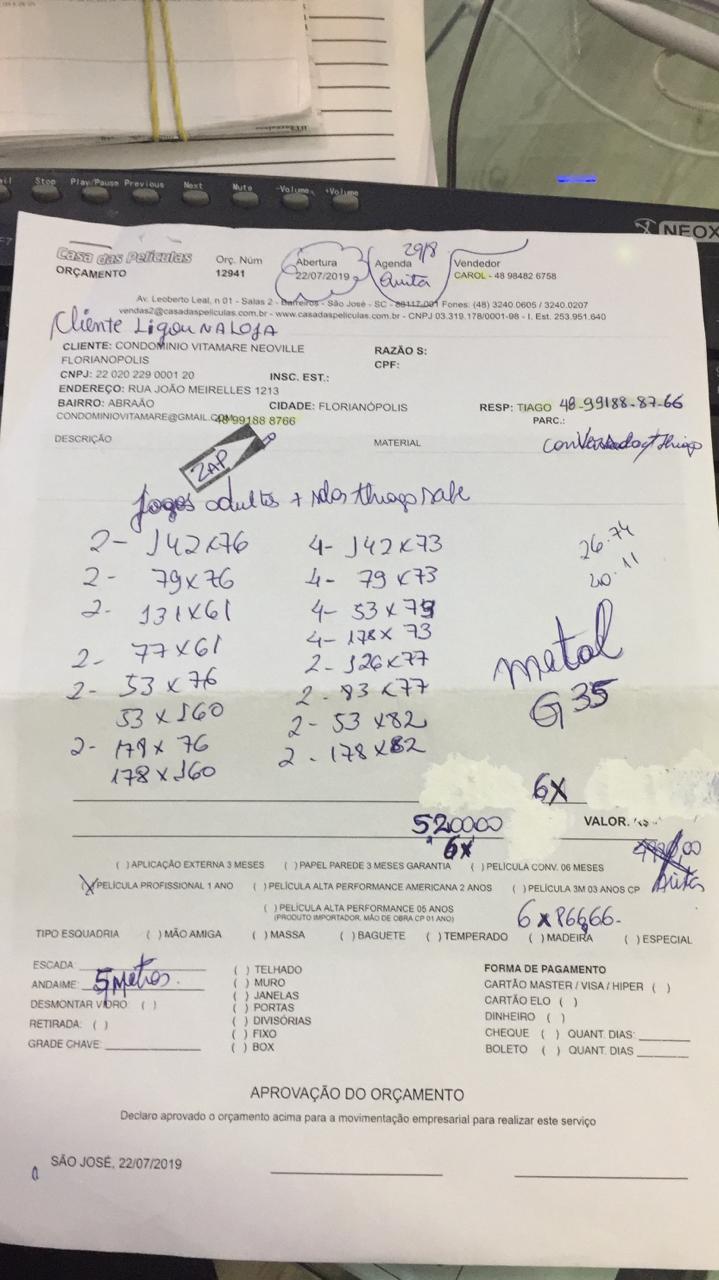 Stop Play/Pause Previous Next Mute -Volume +Volume
F7
NEOX
Casa das Películas
ORÇAMENTO
Orç. Núm
12941
Abertura
22/07/2019
Agenda 29/8
Quita
Vendedor
CAROL - 48 98482 6758
Av. Leoberto Leal, n 01 - Salas 2 - Barreiros - São José - SC - 88117-001 Fones: (48) 3240.0605 / 3240.0207
vendas2@casadaspeliculas.com.br - www.casadaspeliculas.com.br - CNPJ 03.319.178/0001-98 - I. Est. 253.951.640
Cliente Ligou NA LOJA
CLIENTE: CONDOMINIO VITAMARE NEOVILLE
FLORIANOPOLIS
RAZÃO S:
CPF:
CNPJ: 22 020 229 0001 20
INSC. EST.:
ENDEREÇO: RUA JOÃO MEIRELLES 1213
BAIRRO: ABRAÃO
CIDADE: FLORIANÓPOLIS
RESP: TIAGO 48-99188-87-66
CONDOMINIOVITAMARE@GMAIL.COM
48 99188 8766
PARC.:
DESCRIÇÃO
MATERIAL
ZAP
Jogos adultos +
2- 142x76 4- 142x73
2- 79x76 4- 79x73
2- 131x61 4- 53x
2- 77x61 4- 178x73
2- 53x76 2- 126x77
53x160 2- 83x77
2- 179x76 2- 53x82
178x160 2- 178x82
26.74
20.11
metal
G35
6x
520000
6x
VALOR.
( ) APLICAÇÃO EXTERNA 3 MESES ( ) PAPEL PAREDE 3 MESES GARANTIA ( ) PELÍCULA CONV. 06 MESES
(X) PELÍCULA PROFISSIONAL 1 ANO ( ) PELÍCULA ALTA PERFORMANCE AMERICANA 2 ANOS ( ) PELÍCULA 3M 03 ANOS CP
( ) PELÍCULA ALTA PERFORMANCE 05 ANOS
(PRODUTO IMPORTADOR, MÃO DE OBRA CP 01 ANO)
6x86666-
TIPO ESQUADRIA ( ) MÃO AMIGA ( ) MASSA ( ) BAGUETE ( ) TEMPERADO ( ) MADEIRA ( ) ESPECIAL
ESCADA:
ANDAIME: 5 Metros.
DESMONTAR VIDRO: ( )
RETIRADA: ( )
GRADE CHAVE:
( ) TELHADO
( ) MURO
( ) JANELAS
( ) PORTAS
( ) DIVISÓRIAS
( ) FIXO
( ) BOX
FORMA DE PAGAMENTO
CARTÃO MASTER / VISA / HIPER ( )
CARTÃO ELO ( )
DINHEIRO ( )
CHEQUE ( ) QUANT. DIAS:
BOLETO ( ) QUANT. DIAS
APROVAÇÃO DO ORÇAMENTO
Declaro aprovado o orçamento acima para a movimentação empresarial para realizar este serviço
SÃO JOSÉ, 22/07/2019